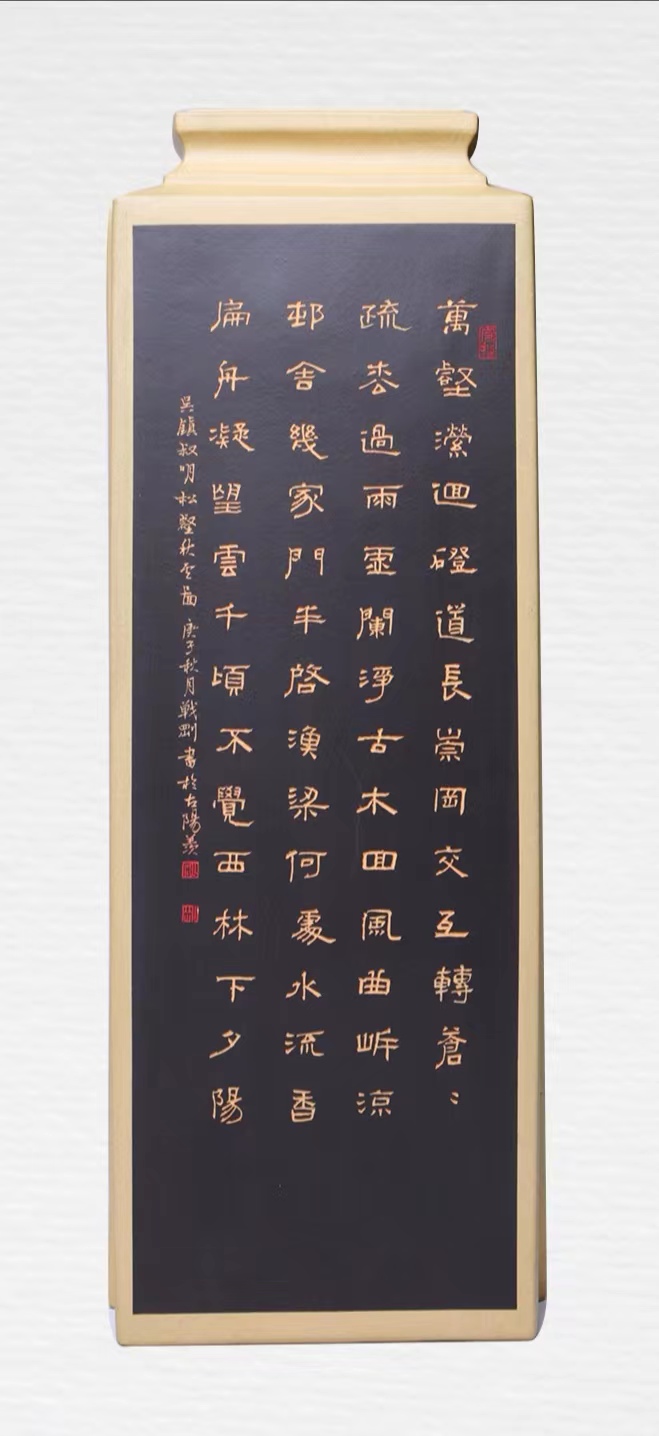 萬壑瀠迴磴道長崇岡交互轉蒼〻
疏枩過雨虛闌淨古木回風曲岸涼
邨舍幾家門半啓漁梁何處水流香
扁舟凝望雲千頃不覺西林下夕陽
吳鎮叔明松壑秋雲圖 庚子秋月戰剛書於古陽羨